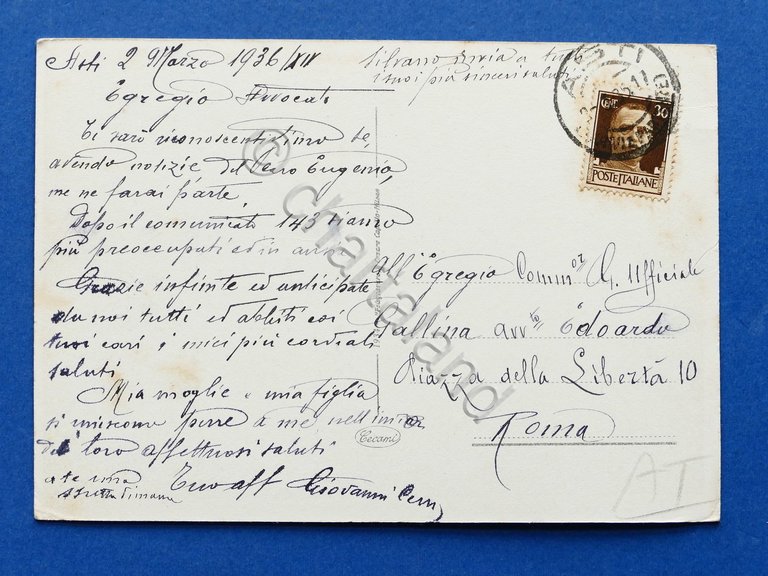 Asti 2 Marzo 1936/XIV
Silvano invia a te
i suoi più sinceri saluti
Egregio Avvocato
Ti sarò riconoscentissimo se,
avendo notizie del caro Eugenio,
me ne farai parte.
Dopo il comunicato 143 siamo
più preoccupati ed in
Grazie infinite ed anticipate
da noi tutti ed abbiti coi
tuoi cari i miei più cordiali
saluti
Mia moglie e mia figlia
si uniscono pure a me nell'inviar
de' loro affettuosi saluti
a te una
stretta di mano
Tuo aff Giovanni
CENT. 30
POSTE ITALIANE
All'Egregio Comm.or G. Ufficiale
Gallina avv.to Edoardo
Piazza della Libertà 10
Roma
Cecami
AT
© chartaland